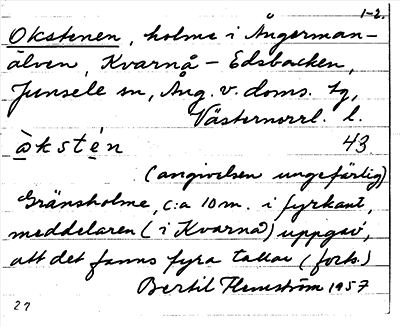 1-2.
Okstenen, holme i Ångerman-
älven, Kvarnå - Edsbacken,
Junsele sn, Ång. v. doms. tg,
Västernorrl. l.
òkstén 43
(angivelsen ungefärlig)
Gränsholme, c:a 10 m. i fyrkant,
meddelaren (i Kvarnå) uppgav,
att det fanns fyra tallar (forts.)
Bertil Flemström 1957
27